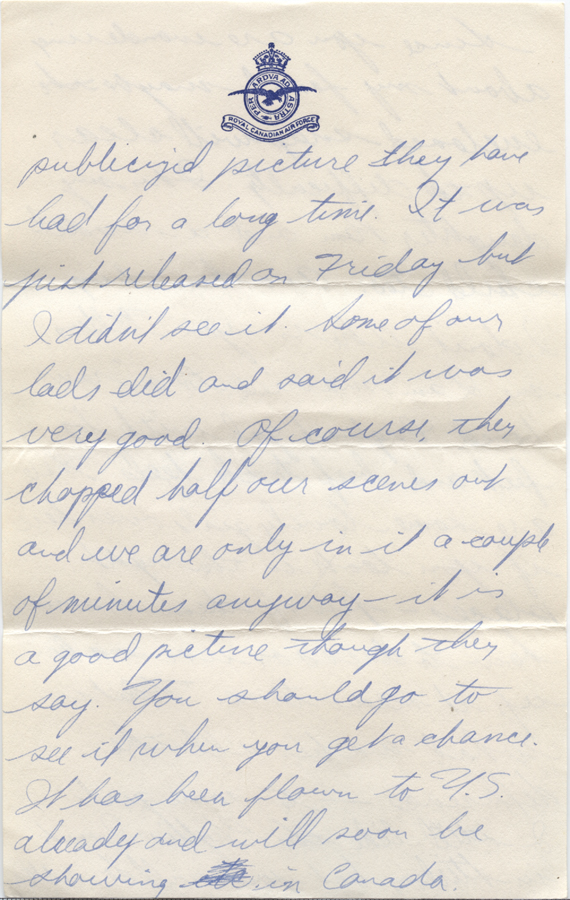 PER ARDVA AD ASTRA
ROYAL CANADIAN AIR FORCE
publicized picture they have
had for a long time. It was
just released on Friday but
I didn't see it. Some of our
lads did and said it was
very good. Of course, they
chopped half our scenes out
and we are only in it a couple
of minutes anyway - it is
a good picture though they
say. You should go to
see it when you get a chance.
It has been flown to U.S.
already and will soon be
showing in Canada.